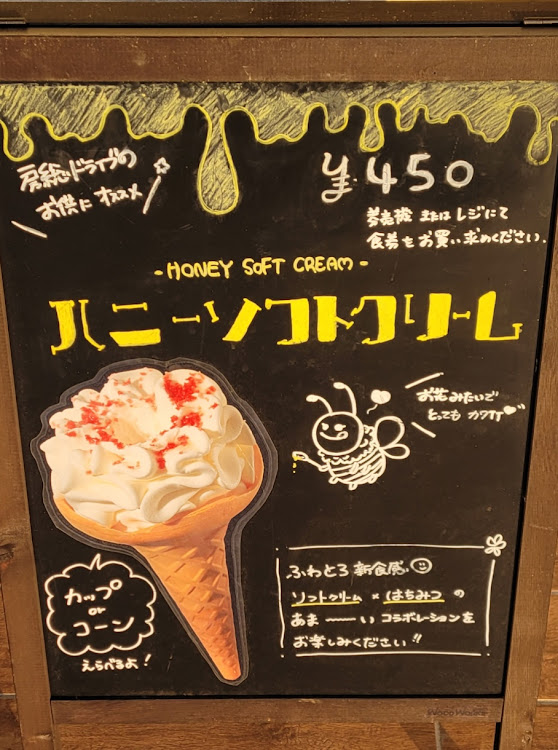 房総ドライブの
お供に オススメ
¥450
券売機 または レジにて
食券を お買い求めください.
- HONEY SOFT CREAM -
ハニーソフトクリーム
お花みたいで
とっても カワイイ
ふわとろ 新食感
ソフトクリーム × はちみつ の
あま〜〜い コラボレーションを
お楽しみください!!
カップ
or
コーン
えらべるよ!